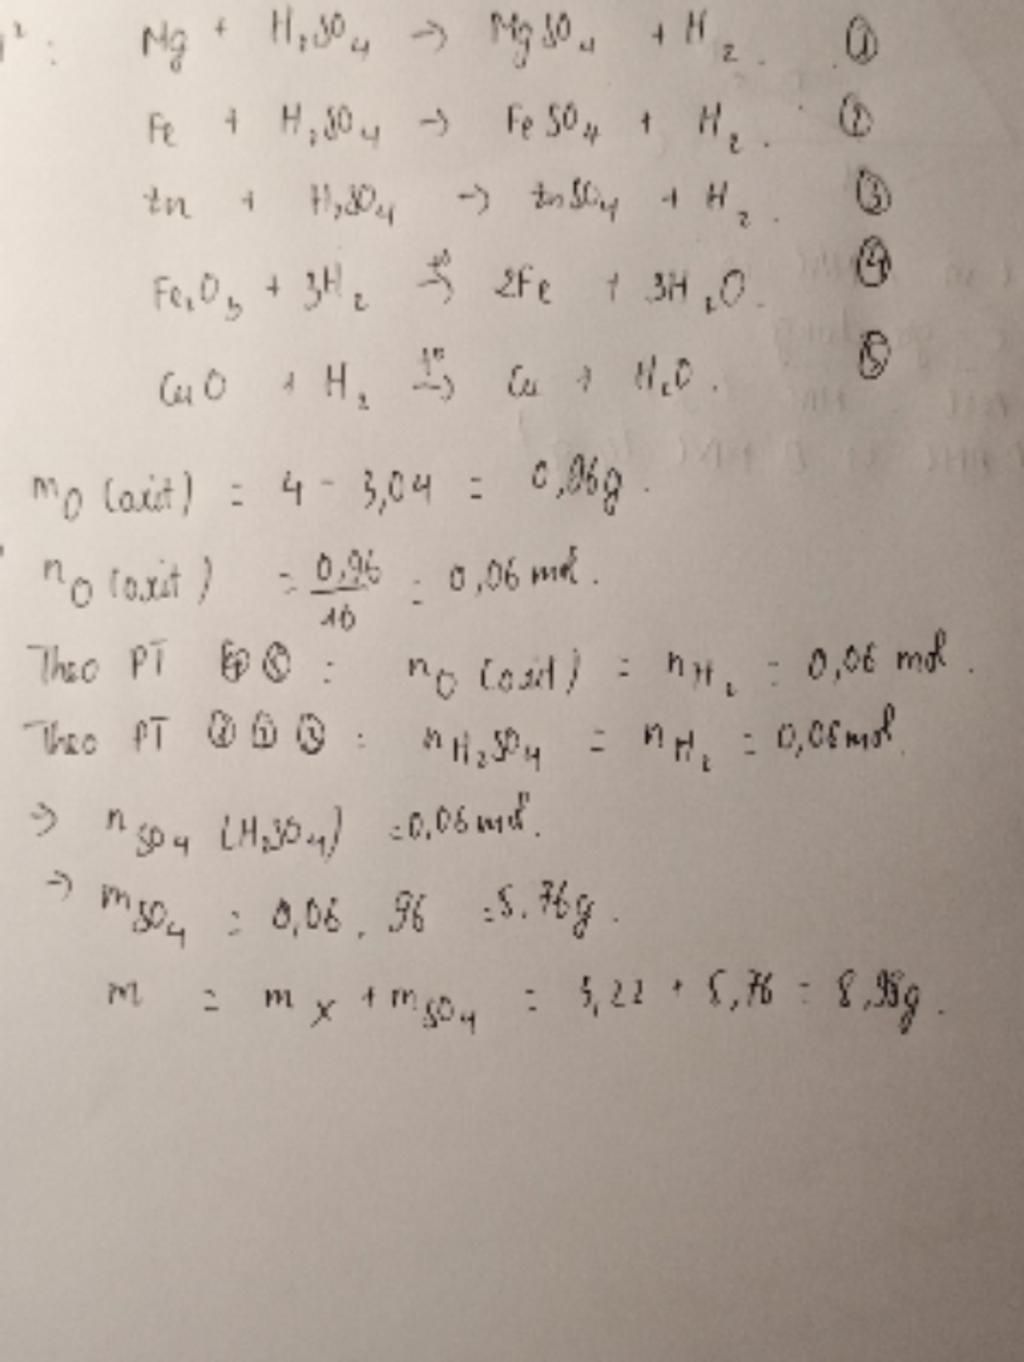 Mg + H₂SO₄ → MgSO₄ + H₂. ①
Fe + H₂SO₄ → FeSO₄ + H₂. ②
Zn + H₂SO₄ → ZnSO₄ + H₂. ③
Fe₂O₃ + 3H₂ →(t°) 2Fe + 3H₂O. ④
CuO + H₂ →(t°) Cu + H₂O. ⑤
mO (oxit) = 4 - 3,04 = 0,96g.
nO (oxit) = 0,96/16 = 0,06 mol.
Theo PT ④ ⑤ : nO (oxit) = nH₂ = 0,06 mol.
Theo PT ② ① ③ : nH₂SO₄ = nH₂ = 0,06 mol.
→ nSO₄ (H₂SO₄) = 0,06 mol.
→ mSO₄ = 0,06 . 96 = 5.76g.
m = mX + mSO₄ = 3,22 + 5,76 = 8,98g.